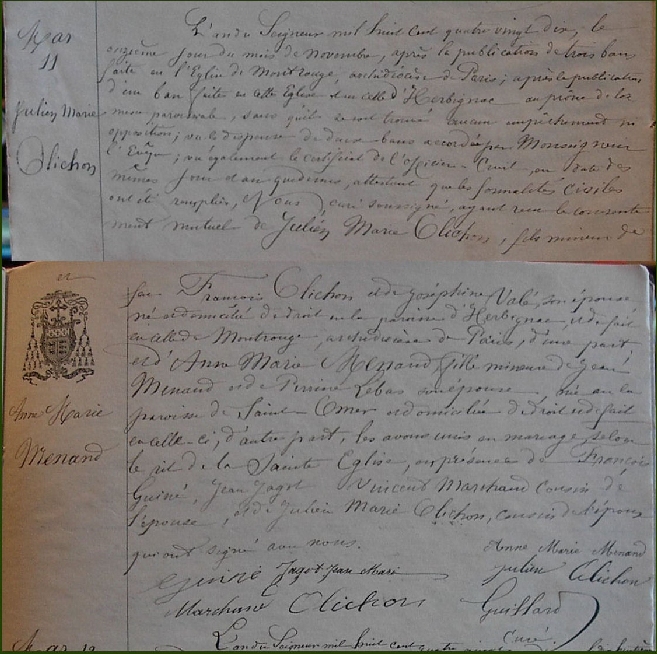 Mar
11
Julien Marie
Clichon
L'an du Seigneur mil huit cent quatre vingt dix, le
onzième jour du mois de novembre, après la publication de trois bans
faite en l'Eglise de Montrouge, archidiocèse de Paris; après la publication
d'un ban faite en cette Eglise et en celle d'Herbignac au prône de la
messe paroissiale, sans qu'il se soit trouvé aucun empêchement ni
opposition; vu la dispense de deux bans accordée par Monseigneur
l'Evêque; vu également le certificat de l'Officier Civil, en date des
mêmes jour et an que dessus, attestant que les formalités civiles
ont été remplies, Nous curé soussigné, ayant reçu le consente
ment mutuel de Julien Marie Clichon, fils mineur de
feu François Clichon et de Joséphine Valé, son épouse
né et domicilié de droit en la paroisse d'Herbignac, et de fait
en celle de Montrouge, archidiocèse de Paris, d'une part
et d'Anne Marie Menand fille mineure de Jean
Menand et de Perrine Lebas son épouse, née en la
paroisse de Saint-Omer et domiciliée de droit et de fait
en celle-ci, d'autre part, les avons unis en mariage selon
le rit de la Sainte Eglise, en présence de François
Guiné, Jean Jagot Vincent Marchand cousin de
l'épouse, et de Julien Marie Clichon, cousin de l'époux
qui ont signé avec nous.
Anne Marie
Menand
Anne Marie Menand
Guiné Jagot Jean Marie Julien Clichon
Marchand Clichon Guillard
curé.
Mar 12
L'an du Seigneur mil huit cent quatre